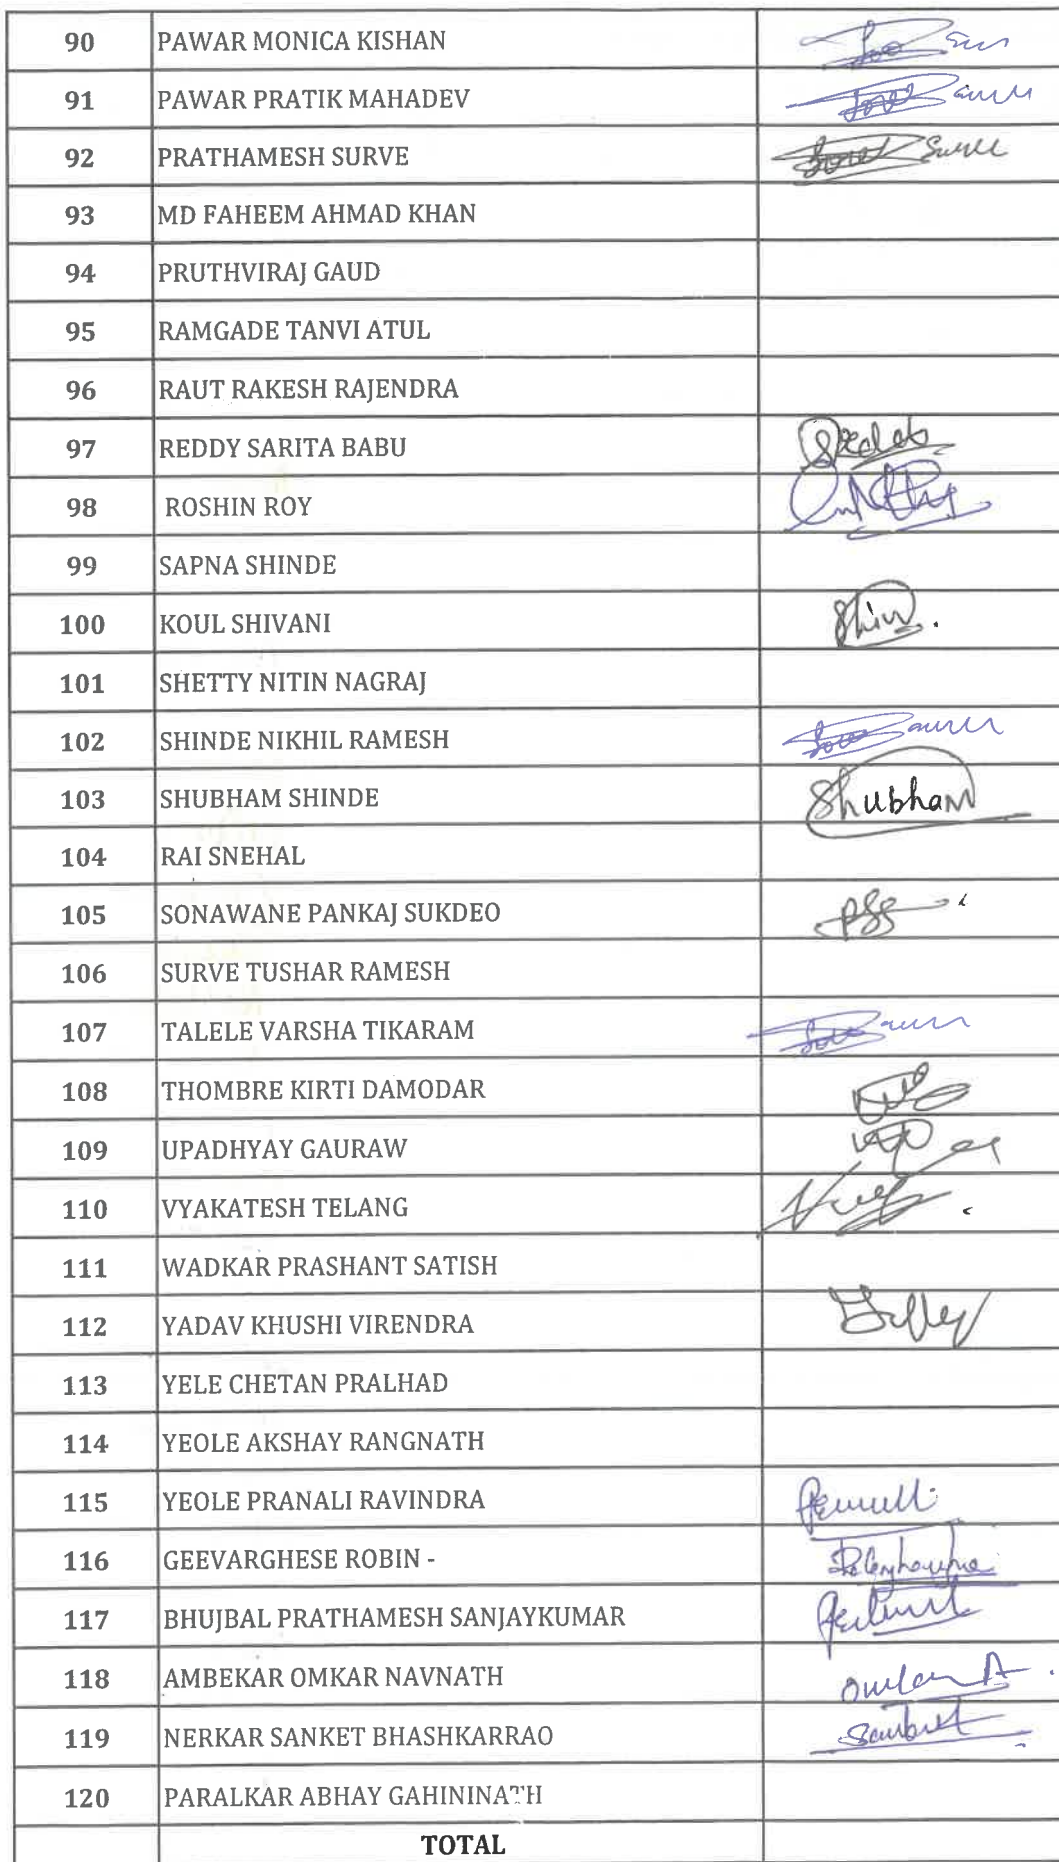 90 PAWAR MONICA KISHAN
91 PAWAR PRATIK MAHADEV
92 PRATHAMESH SURVE
93 MD FAHEEM AHMAD KHAN
94 PRUTHVIRAJ GAUD
95 RAMGADE TANVI ATUL
96 RAUT RAKESH RAJENDRA
97 REDDY SARITA BABU
98 ROSHIN ROY
99 SAPNA SHINDE
100 KOUL SHIVANI
101 SHETTY NITIN NAGRAJ
102 SHINDE NIKHIL RAMESH
103 SHUBHAM SHINDE Shubham
104 RAI SNEHAL
105 SONAWANE PANKAJ SUKDEO
106 SURVE TUSHAR RAMESH
107 TALELE VARSHA TIKARAM
108 THOMBRE KIRTI DAMODAR
109 UPADHYAY GAURAW
110 VYAKATESH TELANG
111 WADKAR PRASHANT SATISH
112 YADAV KHUSHI VIRENDRA
113 YELE CHETAN PRALHAD
114 YEOLE AKSHAY RANGNATH
115 YEOLE PRANALI RAVINDRA
116 GEEVARGHESE ROBIN -
117 BHUJBAL PRATHAMESH SANJAYKUMAR
118 AMBEKAR OMKAR NAVNATH
119 NERKAR SANKET BHASHKARRAO
120 PARALKAR ABHAY GAHININATH
TOTAL